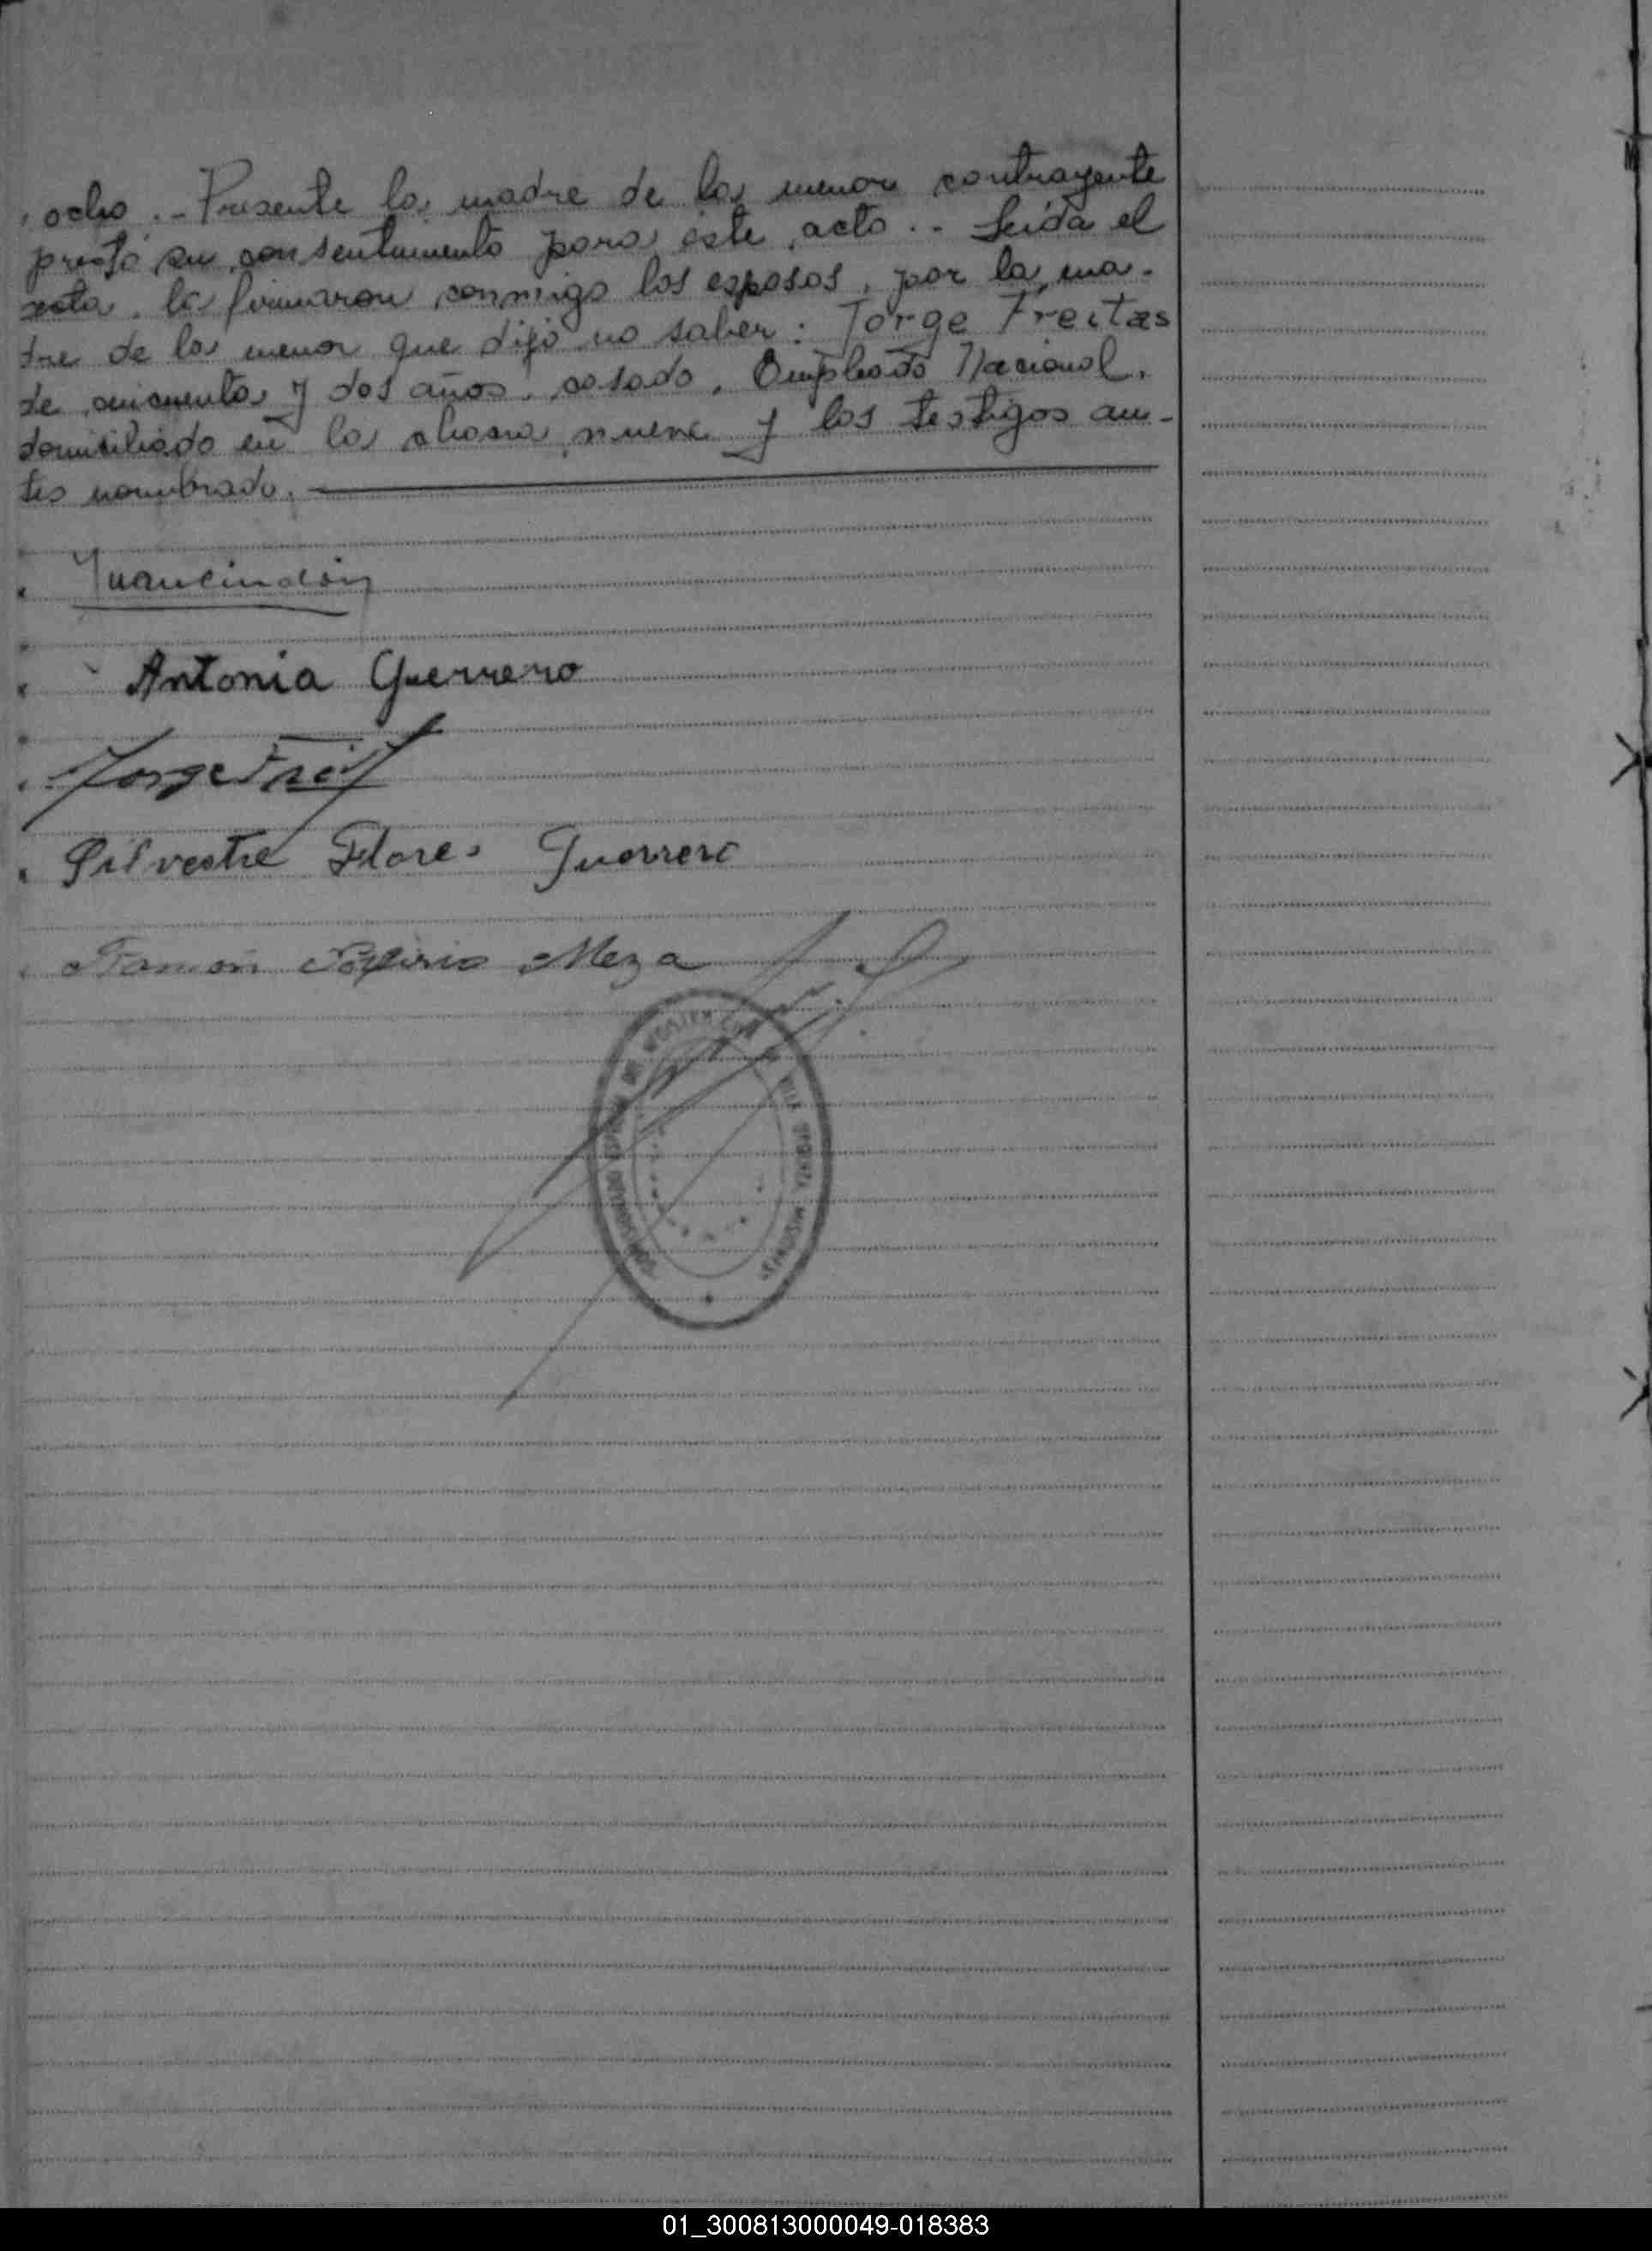 ocho .- Presente la madre de la menor contrayente
prestó su consentimiento para éste acto .. Leída el
acta, la firmaron conmigo los esposos, por la ma-
dre de la menor que dijo no saber: Jorge Freitas
de cincuenta y dos años, casado, Empleado Nacional,
domiciliado en la chacra nueve y los testigos an-
tes nombrado.
Antonia Guerrero
Jorge
Silvestre Flores Guerrero
Ramón Porfirio Meza
MISIONES
01_300813000049-018383